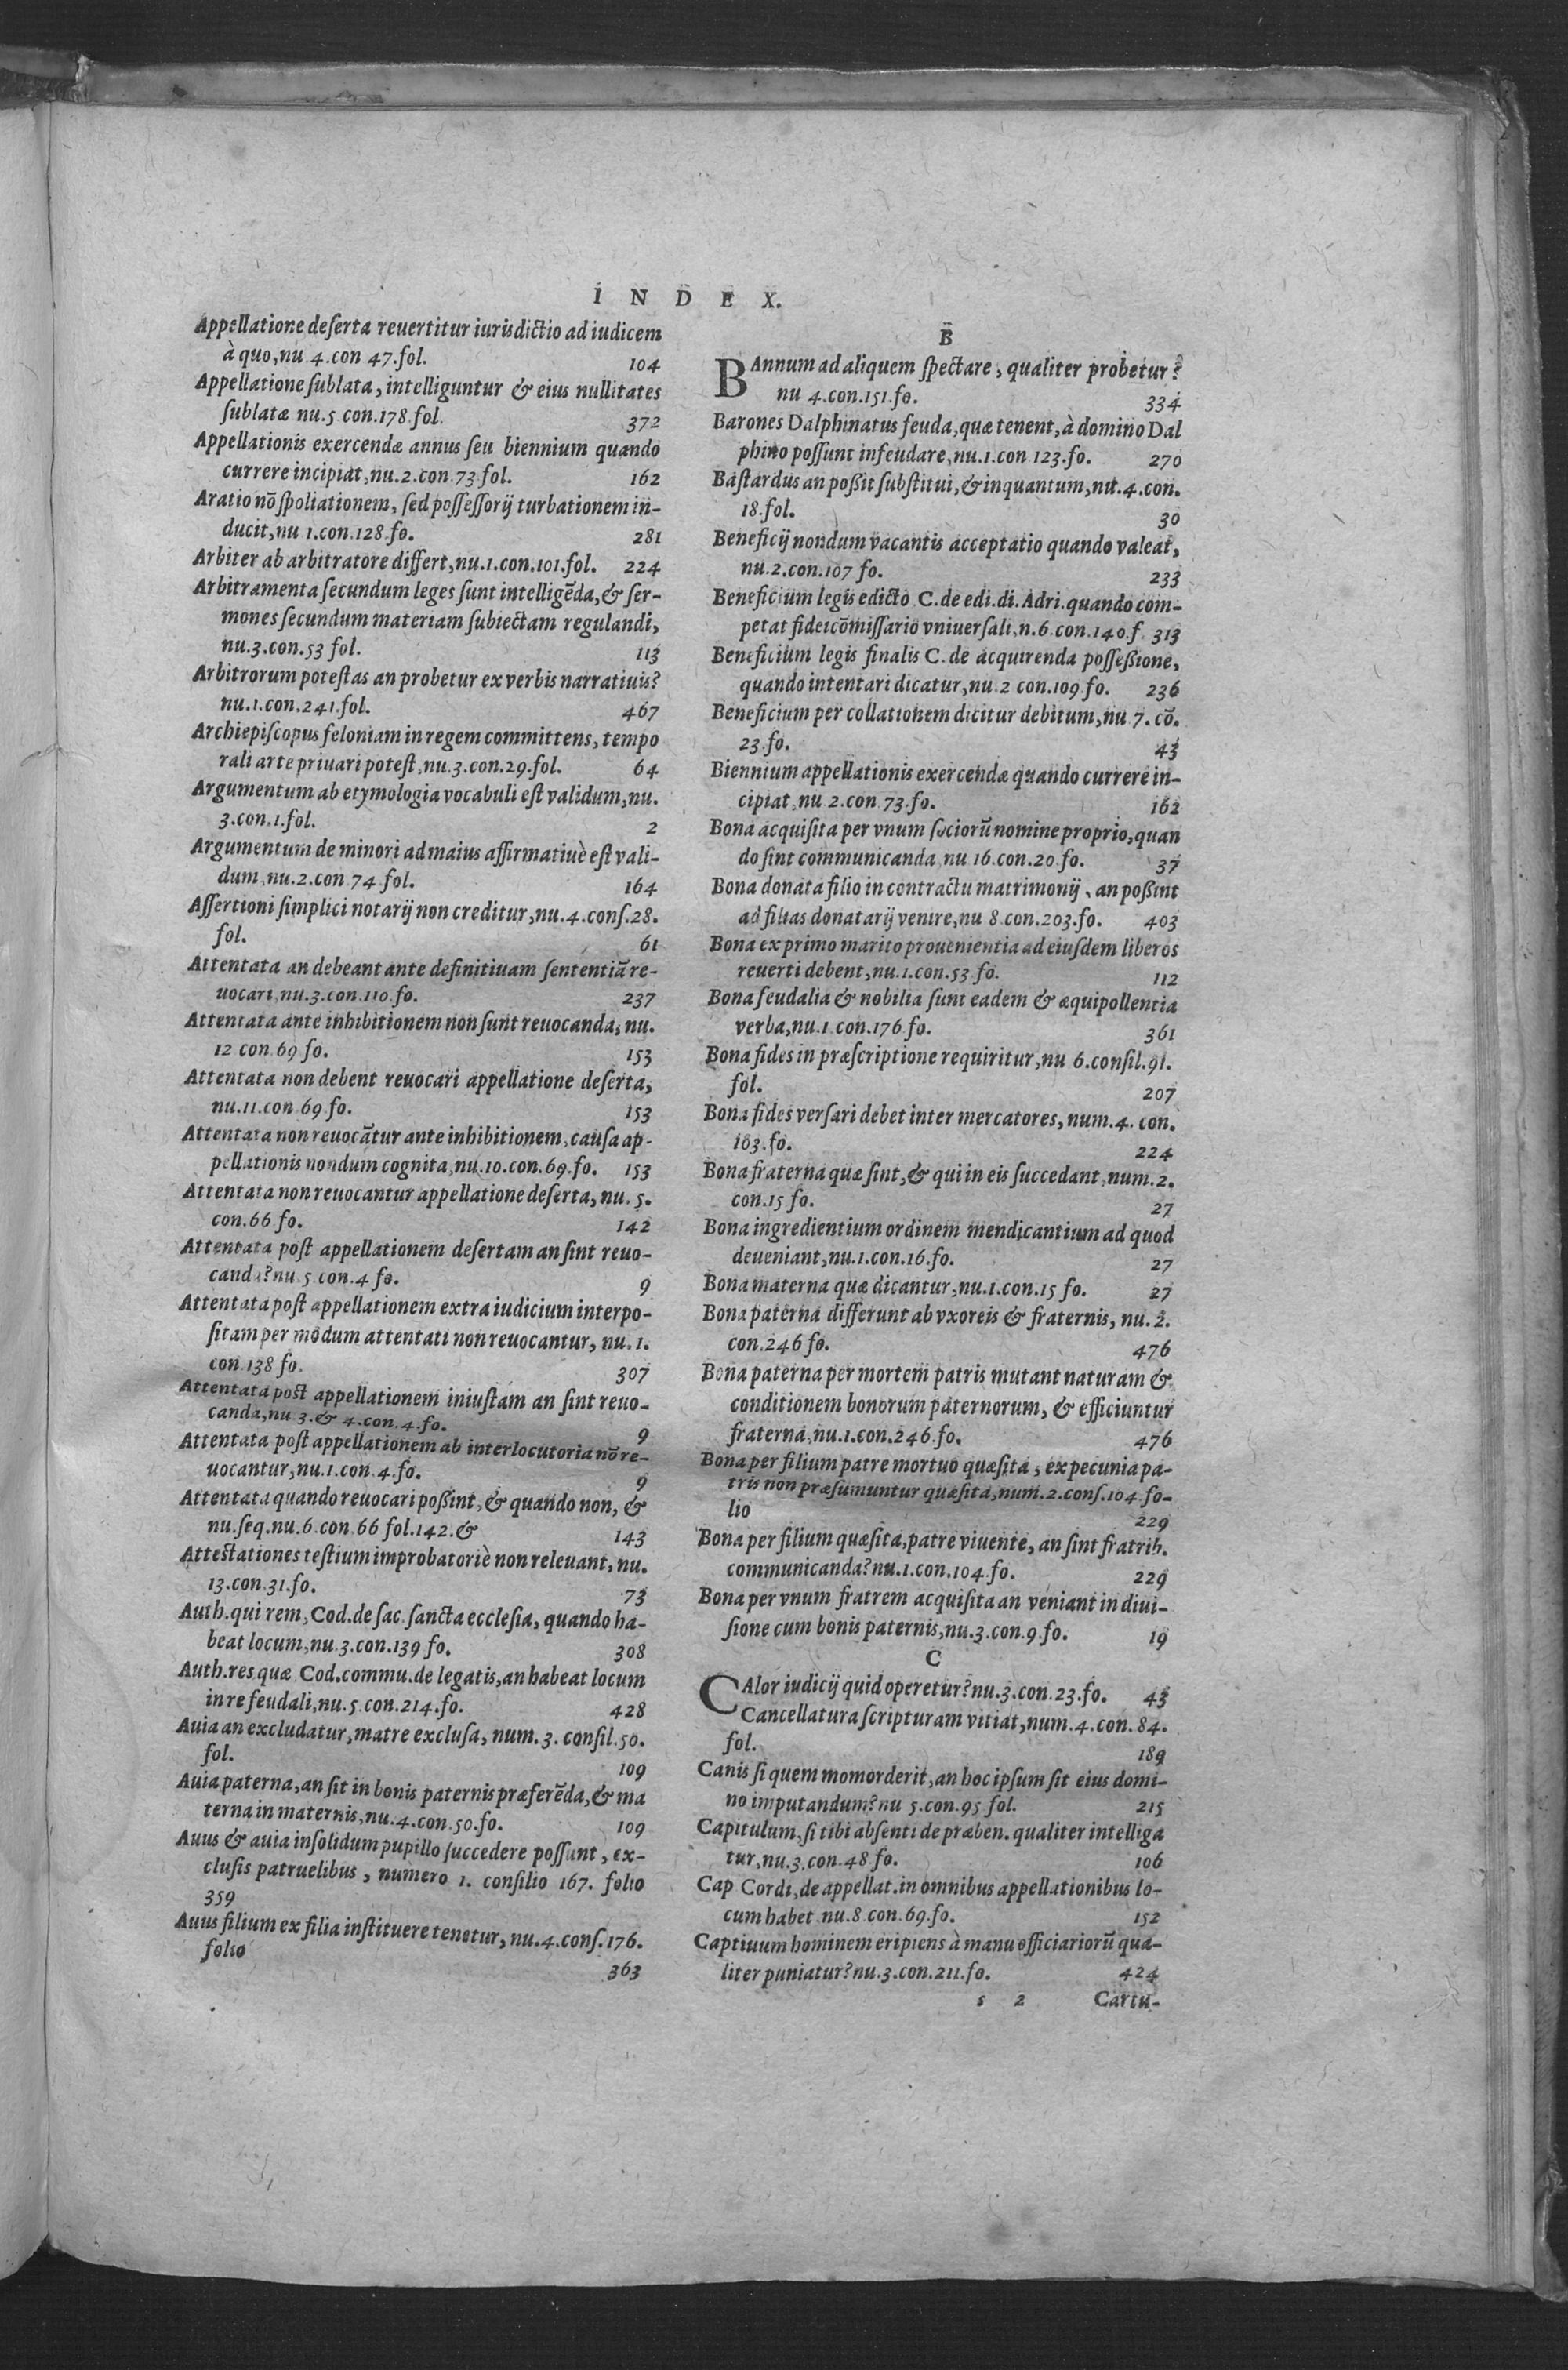 I N D E X.
Appellatione deſerta reuertitur iurisdictio ad iudicem
à quo, nu 4. con 47. fol. 104
Appellatione ſublata, intelliguntur & eius nullitates
ſublatæ nu. 5. con. 178. fol. 372
Appellationis exercendæ annus ſeu biennium quando
currere incipiat, nu. 2. con. 73. fol. 162
Aratio nō ſpoliationem, ſed poſſeſſorij turbationem in-
ducit, nu 1. con. 128. fo. 281
Arbiter ab arbitratore differt, nu. 1. con. 101. fol. 224
Arbitramenta ſecundum leges ſunt intelligēda, & ſer-
mones ſecundum materiam ſubiectam regulandi,
nu. 3. con. 53 fol. 113
Arbitrorum poteſtas an probetur ex verbis narratiuis?
nu. 1. con. 241. fol. 467
Archiepiſcopus feloniam in regem committens, tempo
rali arte priuari poteſt, nu. 3. con. 29. fol. 64
Argumentum ab etymologia vocabuli eſt validum, nu.
3. con. 1. fol. 2
Argumentum de minori ad maius affirmatiuè eſt vali-
dum, nu. 2. con 74. fol. 164
Aſſertioni ſimplici notarij non creditur, nu. 4. conſ. 28.
fol. 61
Attentata an debeant ante definitiuam ſententiā re-
uocari, nu. 3. con. 110. fo. 237
Attentata ante inhibitionem non ſunt reuocanda, nu.
12 con. 69 fo. 153
Attentata non debent reuocari appellatione deſerta,
nu. 11. con. 69. fo. 153
Attentata non reuocātur ante inhibitionem, cauſa ap-
pellationis nondum cognita, nu. 10. con. 69. fo. 153
Attentata non reuocantur appellatione deſerta, nu. 5.
con. 66 fo. 142
Attentata poſt appellationem deſertam an ſint reuo-
canda? nu. 5. con. 4 fo. 9
Attentata poſt appellationem extra iudicium interpo-
ſitam per modum attentati non reuocantur, nu. 1.
con. 138 fo. 307
Attentata poſt appellationem iniuſtam an ſint reuo-
canda, nu 3. & 4. con. 4. fo. 9
Attentata poſt appellationem ab interlocutoria nō re-
uocantur, nu. 1. con. 4. fo. 9
Attentata quando reuocari poßint, & quando non, &
nu. ſeq. nu. 6. con. 66 fol. 142. & 143
Atteſtationes teſtium improbatoriè non releuant, nu.
13. con. 31. fo. 73
Auth. qui rem, Cod. de ſac. ſancta eccleſia, quando ha-
beat locum, nu. 3. con. 139 fo. 308
Auth. res quæ Cod. commu. de legatis, an habeat locum
in re feudali, nu. 5. con. 214. fo. 428
Auia an excludatur, matre excluſa, num. 3. conſil. 50.
fol. 109
Auia paterna, an ſit in bonis paternis præferēda, & ma
terna in maternis, nu. 4. con. 50. fo. 109
Auus & auia inſolidum pupillo ſuccedere poſſunt, ex-
cluſis patruelibus, numero 1. conſilio 167. folio
359
Auus filium ex filia inſtituere tenetur, nu. 4. conſ. 176.
folio 363
B
BAnnum ad aliquem ſpectare, qualiter probetur?
nu 4. con. 151. fo. 334
Barones Dalphinatus feuda, quæ tenent, à domino Dal
phino poſſunt infeudare, nu. 1. con 123. fo. 270
Baſtardus an poßit ſubſtitui, & inquantum, nu. 4. con.
18. fol. 30
Beneficij nondum vacantis acceptatio quando valeat,
nu. 2. con. 107 fo. 233
Beneficium legis edicto C. de edi. di. Adri. quando com-
petat fideicōmiſſario vniuerſali, n. 6. con. 140. f. 313
Beneficium legis finalis C. de acquirenda poſſeßione,
quando intentari dicatur, nu. 2 con. 109. fo. 236
Beneficium per collationem dicitur debitum, nu 7. cō.
23. fo. 43
Biennium appellationis exercendæ quando currere in-
cipiat, nu 2. con. 73. fo. 162
Bona acquiſita per vnum ſociorū nomine proprio, quan
do ſint communicanda, nu 16. con. 20. fo. 37
Bona donata filio in contractu matrimonij, an poßint
ad filias donatarij venire, nu 8. con. 203. fo. 403
Bona ex primo marito prouenientia ad eiuſdem liberos
reuerti debent, nu. 1. con. 53. fo. 112
Bona feudalia & nobilia ſunt eadem & æquipollentia
verba, nu. 1. con. 176. fo. 361
Bona fides in præſcriptione requiritur, nu 6. conſil. 91.
fol. 207
Bona fides verſari debet inter mercatores, num. 4. con.
103. fo. 224
Bona fraterna quæ ſint, & qui in eis ſuccedant, num. 2.
con. 15 fo. 27
Bona ingredientium ordinem mendicantium ad quod
deueniant, nu. 1. con. 16. fo. 27
Bona materna quæ dicantur, nu. 1. con. 15 fo. 27
Bona paterna differunt ab vxoreis & fraternis, nu. 2.
con. 246 fo. 476
Bona paterna per mortem patris mutant naturam &
conditionem bonorum paternorum, & efficiuntur
fraterna, nu. 1. con. 246. fo. 476
Bona per filium patre mortuo quæſita, ex pecunia pa-
tris non præſumuntur quæſita, num. 2. conſ. 104. fo-
lio 229
Bona per filium quæſita, patre viuente, an ſint fratrib.
communicanda? nu. 1. con. 104. fo. 229
Bona per vnum fratrem acquiſita an veniant in diui-
ſione cum bonis paternis, nu. 3. con. 9. fo. 19
C
CAlor iudicij quid operetur? nu. 3. con. 23. fo. 43
Cancellatura ſcripturam vitiat, num. 4. con. 84.
fol. 189
Canis ſi quem momorderit, an hoc ipſum ſit eius domi-
no imputandum? nu 5. con. 95 fol. 215
Capitulum, ſi tibi abſenti de præben. qualiter intelliga
tur, nu. 3. con. 48 fo. 106
Cap Cordi, de appellat. in omnibus appellationibus lo-
cum habet nu. 8. con. 69. fo. 152
Captiuum hominem eripiens à manu officiariorū qua-
liter puniatur? nu. 3. con. 211. fo. 424
s 2 Cartu-